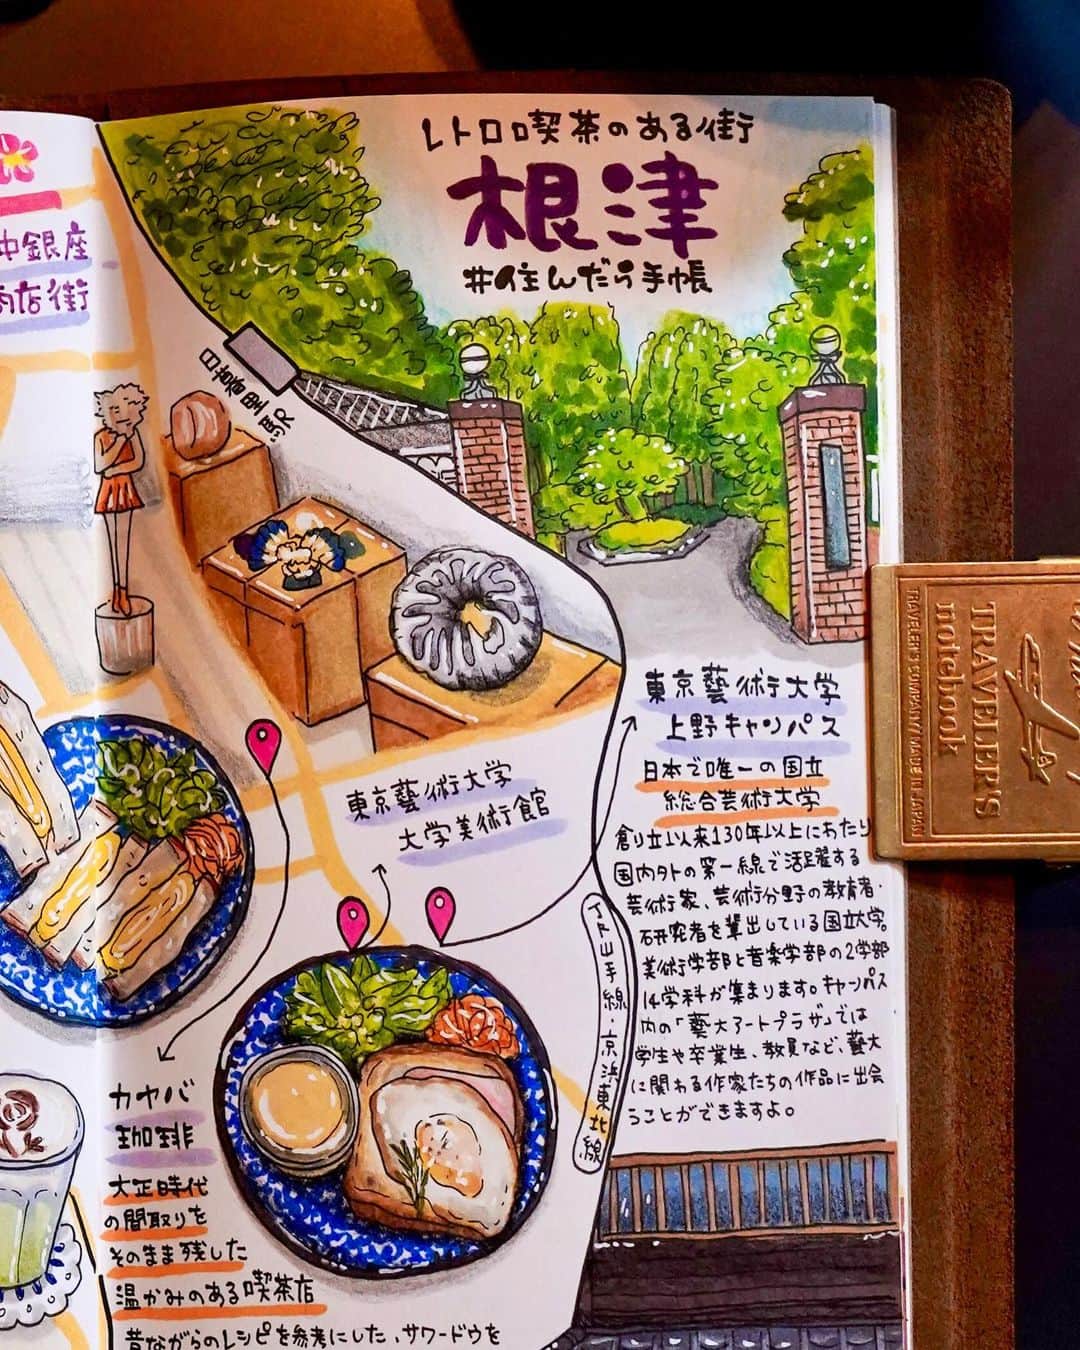 レトロ喫茶のある街
根津
#住んだら手帳
中銀座
商店街
日暮里駅
東京藝術大学
大学美術館
東京藝術大学
上野キャンパス
日本で唯一の国立
総合芸術大学
創立以来130年以上にわたり
国内外の第一線で活躍する
芸術家、芸術分野の教育者・
研究者を輩出している国立大学。
美術学部と音楽学部の2学部
14学科が集まります。キャンパス
内の「藝大アートプラザ」では
学生や卒業生、教員など、藝大
に関わる作家たちの作品に出会
うことができますよ。
JR山手線・京浜東北線
カヤバ
珈琲
大正時代
の間取りを
そのまま残した
温かみのある喫茶店
昔ながらのレシピを参考にした、サワードウを
TRAVELER'S
notebook
TRAVELER'S COMPANY MADE IN JAPAN